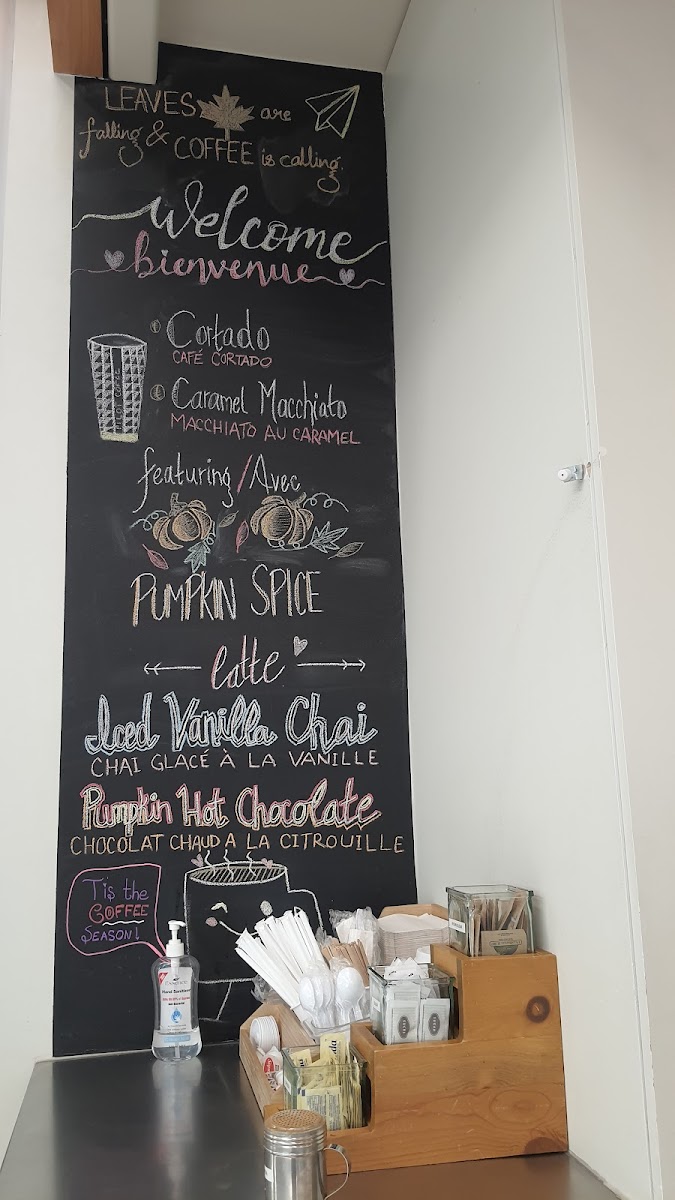 LEAVES are
falling & COFFEE is calling.
Welcome
bienvenue
Cortado
CAFÉ CORTADO
Caramel Macchiato
MACCHIATO AU CARAMEL
featuring/Avec
PUMPKIN SPICE
latte
Iced Vanilla Chai
CHAI GLACÉ À LA VANILLE
Pumpkin Hot Chocolate
CHOCOLAT CHAUD A LA CITROUILLE
Tis the
COFFEE
SEASON!
Hand Sanitizer